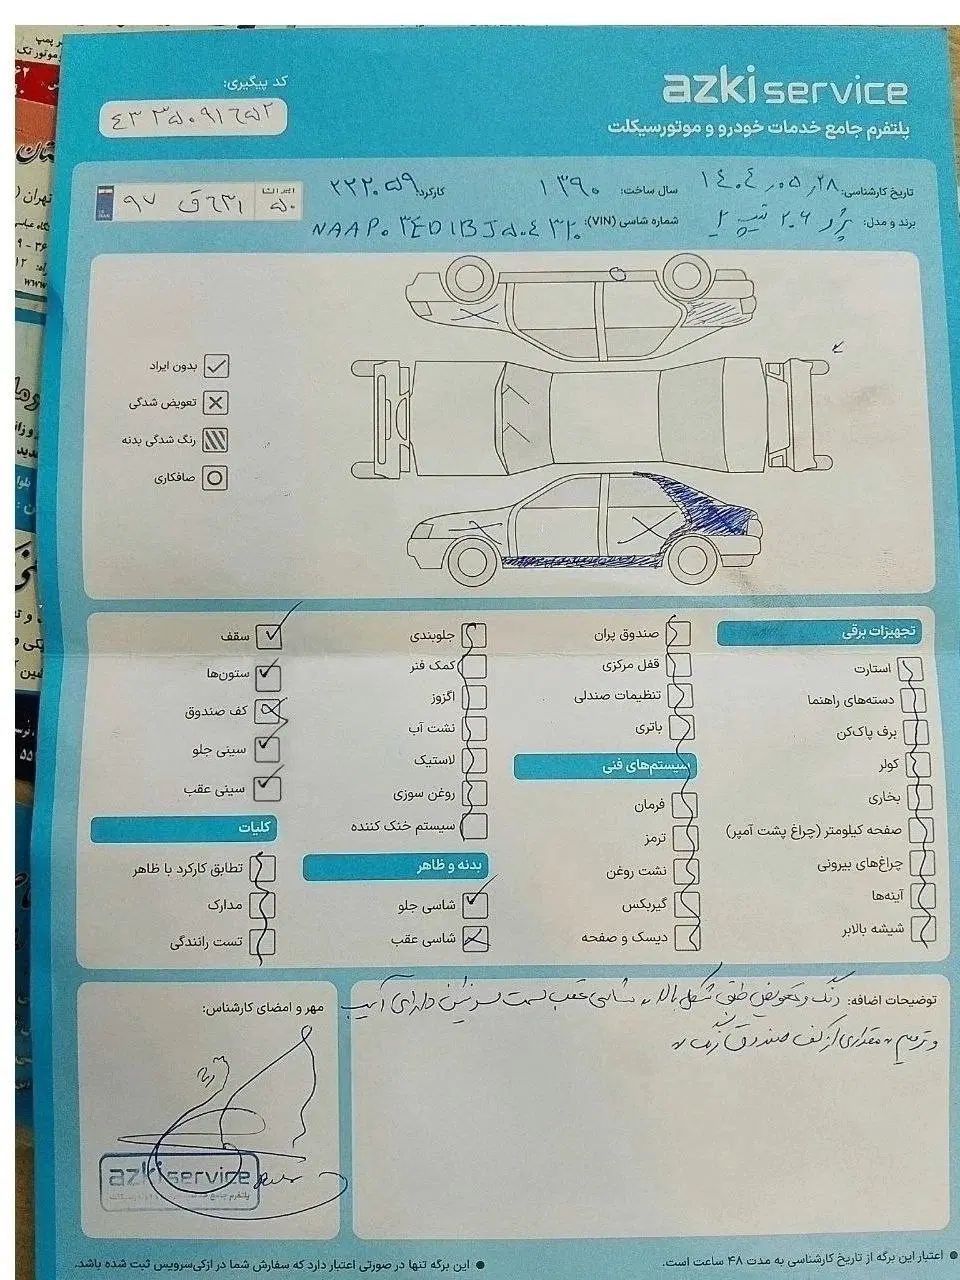 azki service
پلتفرم جامع خدمات خودرو و موتورسیکلت
کد پیگیری:
۴۳۳۵۰۹۱۶۵۲
تاریخ کارشناسی: ۱۴۰۴٫۰۵٫۲۸
سال ساخت: ۱۳۹۰
کارکرد: ۲۲۲۰۵۹
ایران ۵۰ ۶۳۱ ق ۹۷
برند و مدل: پژو ۲۰۶ تیپ ۲
شماره شاسی (VIN): NAAP۰۳ED۱BJ۵۰۴۳۲۰
بدون ایراد
تعویض شدگی
رنگ شدگی بدنه
صافکاری
تجهیزات برقی
استارت
دسته‌های راهنما
برف پاک‌کن
کولر
بخاری
صفحه کیلومتر (چراغ پشت آمپر)
چراغ‌های بیرونی
آینه‌ها
شیشه بالابر
صندوق پران
قفل مرکزی
تنظیمات صندلی
باتری
سیستم‌های فنی
فرمان
ترمز
نشت روغن
گیربکس
دیسک و صفحه
جلوبندی
کمک فنر
اگزوز
نشت آب
لاستیک
روغن سوزی
سیستم خنک کننده
بدنه و ظاهر
شاسی جلو
شاسی عقب
سقف
ستون‌ها
کف صندوق
سینی جلو
سینی عقب
کلیات
تطابق کارکرد با ظاهر
مدارک
تست رانندگی
توضیحات اضافه: رنگ و تعویض طبق شکل بالا، شاسی عقب سمت سرنشین دارای آسیب
و ترمیم، مقداری از کف صندوق رنگ
مهر و امضای کارشناس:
azki service
اعتبار این برگه از تاریخ کارشناسی به مدت ۴۸ ساعت است.
این برگه تنها در صورتی اعتبار دارد که سفارش شما در ازکی‌سرویس ثبت شده باشد.